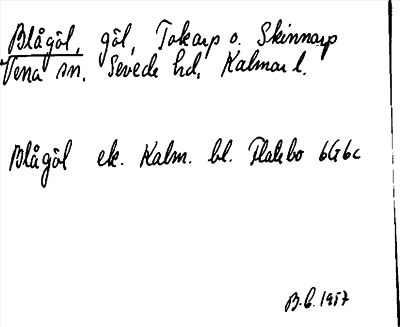 Blågöl, göl, Tokarp o. Skinnarp
Vena sn. Sevede hd, Kalmar l.
Blågöl ek. Kalm. bl. Flakbo 6G6c
B.C. 1957